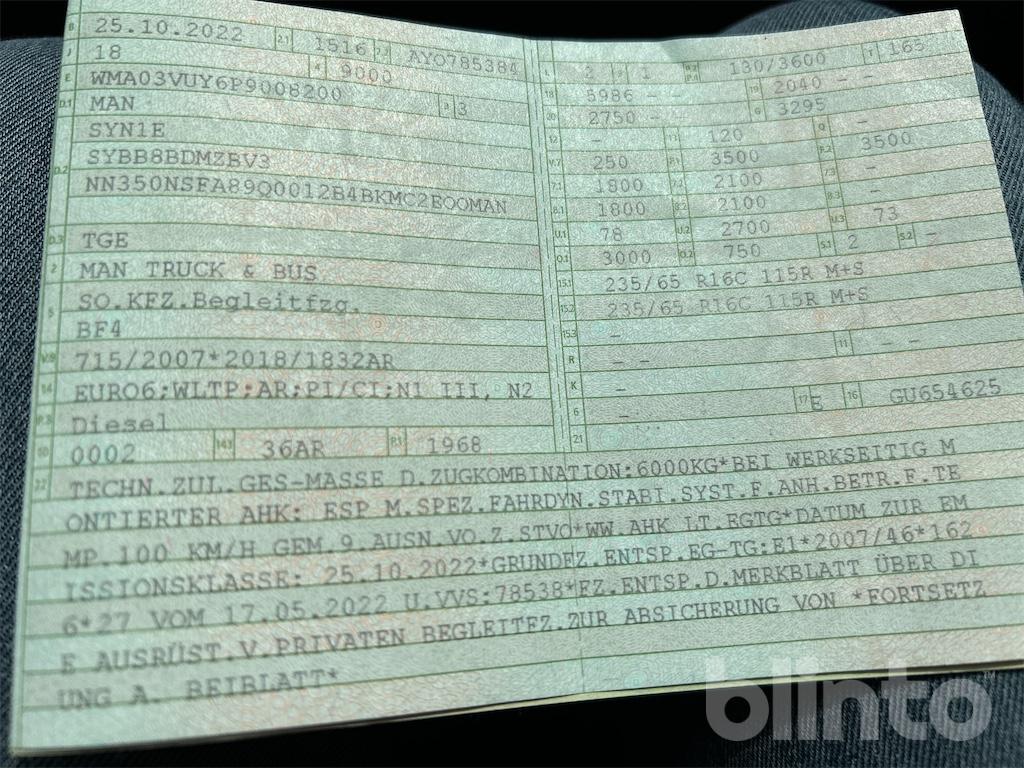 B 25.10.2022 2.1 1516 2.2 AYO785384
J 18 4 9000
E WMA03VUY6P9008200 3 3
D.1 MAN
SYN1E
D.2 SYBB8BDMZBV3
NN350NSFA89Q0012B4BKMC2EOOMAN
D.3 TGE
2 MAN TRUCK & BUS
5 SO.KFZ.Begleitfzg.
BF4
V.9 715/2007*2018/1832AR
14 EURO6;WLTP;AR;PI/CI;N1 III, N2
P.3 Diesel
10 0002 14.1 36AR P.1 1968
L 2 9 1 P.2 P.4 130/3600 T 165
18 5986 - - 19 2040 - -
20 2750 - - G 3295
12 - 13 120 Q -
V.7 250 F.1 3500 F.2 3500
7.1 1800 7.2 2100 7.3 -
8.1 1800 8.2 2100 8.3 -
U.1 78 U.2 2700 U.3 73
O.1 3000 O.2 750 S.1 2 S.2 -
15.1 235/65 R16C 115R M+S
15.2 235/65 R16C 115R M+S
15.3 -
R - - 11 - -
K -
6 - 17 E 16 GU654625
21
22 TECHN.ZUL.GES-MASSE D.ZUGKOMBINATION:6000KG*BEI WERKSEITIG M
ONTIERTER AHK: ESP M.SPEZ.FAHRDYN.STABI.SYST.F.ANH.BETR.F.TE
MP.100 KM/H GEM.9.AUSN.VO.Z.STVO*WW.AHK LT.EGTG*DATUM ZUR EM
ISSIONSKLASSE: 25.10.2022*GRUNDFZ.ENTSP.EG-TG:E1*2007/46*162
6*27 VOM 17.05.2022 U.VVS:78538*FZ.ENTSP.D.MERKBLATT ÜBER DI
E AUSRÜST.V.PRIVATEN BEGLEITFZ.ZUR ABSICHERUNG VON *FORTSETZ
UNG A. BEIBLATT*
blinto